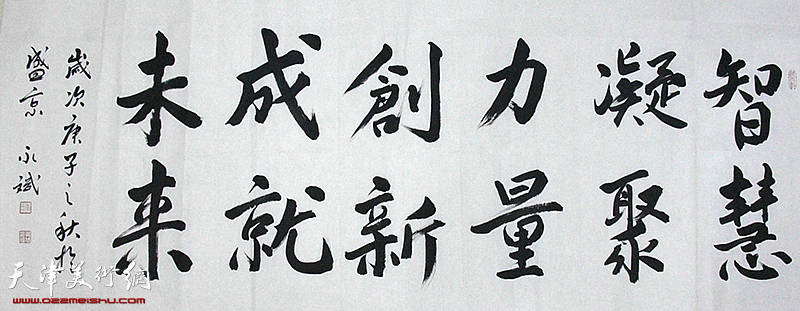 智慧
凝聚
力量
創新
成就
未来
歲次庚子之秋於
盛京 永斌
天津美術網
www.022meishu.com